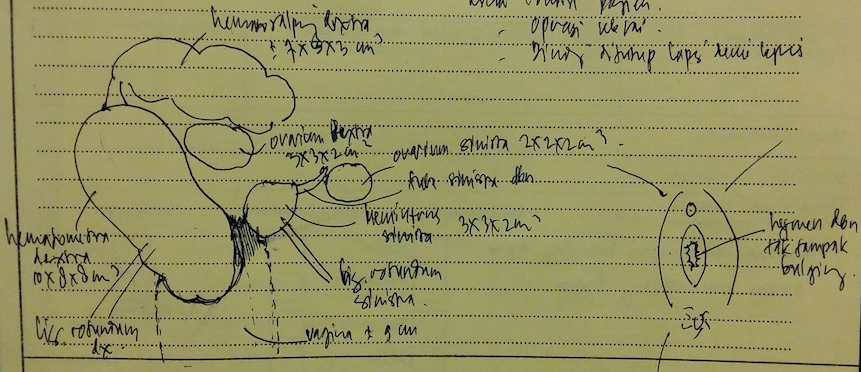 operasi selesai.
Dinding ditutup lapis demi lapis
hematosalping dextra
± 7x5x5 cm³
ovarium dextra
3x3x2 cm³
ovarium sinistra 2x2x2 cm³.
tuba sinistra dbn
hemiuterus
sinistra
3x3x2 cm³
hematometra
dextra
10x8x8 cm³
Lig. rotundum
sinistra.
Lig. rotundum
dx.
vagina ± 9 cm
hymen dbn
tak tampak
bulging.